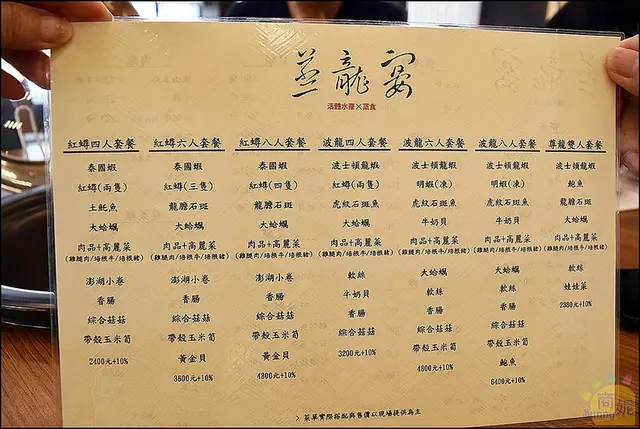 蒸龍宴
活體水產×蒸食
紅蟳四人套餐
泰國蝦
紅蟳(兩隻)
土魠魚
大蛤蠣
肉品+高麗菜
(雞腿肉/培根牛/培根豬)
澎湖小卷
香腸
綜合菇菇
帶殼玉米筍
2400元+10%
紅蟳六人套餐
泰國蝦
紅蟳(三隻)
龍膽石斑
大蛤蠣
肉品+高麗菜
(雞腿肉/培根牛/培根豬)
澎湖小卷
香腸
綜合菇菇
帶殼玉米筍
黃金貝
3600元+10%
紅蟳八人套餐
泰國蝦
紅蟳(四隻)
龍膽石斑
大蛤蠣
肉品+高麗菜
(雞腿肉/培根牛/培根豬)
澎湖小卷
香腸
綜合菇菇
帶殼玉米筍
黃金貝
4800元+10%
波龍四人套餐
波士頓龍蝦
紅蟳(兩隻)
虎紋石斑魚
大蛤蠣
肉品+高麗菜
(雞腿肉/培根牛/培根豬)
軟絲
牛奶貝
香腸
綜合菇菇
3200元+10%
波龍六人套餐
波士頓龍蝦
明蝦(凍)
虎紋石斑魚
牛奶貝
肉品+高麗菜
(雞腿肉/培根牛/培根豬)
大蛤蠣
軟絲
香腸
綜合菇菇
帶殼玉米筍
4800元+10%
波龍八人套餐
波士頓龍蝦
明蝦(凍)
虎紋石斑魚
牛奶貝
肉品+高麗菜
(雞腿肉/培根牛/培根豬)
大蛤蠣
軟絲
香腸
綜合菇菇
帶殼玉米筍
鮑魚
6400元+10%
尊龍雙人套餐
波士頓龍蝦
鮑魚
龍膽石斑
大蛤蠣
肉品+高麗菜
(雞腿肉/培根牛/培根豬)
軟絲
娃娃菜
2380元+10%
> 菜單實際搭配與售價以現場提供為主
商妮